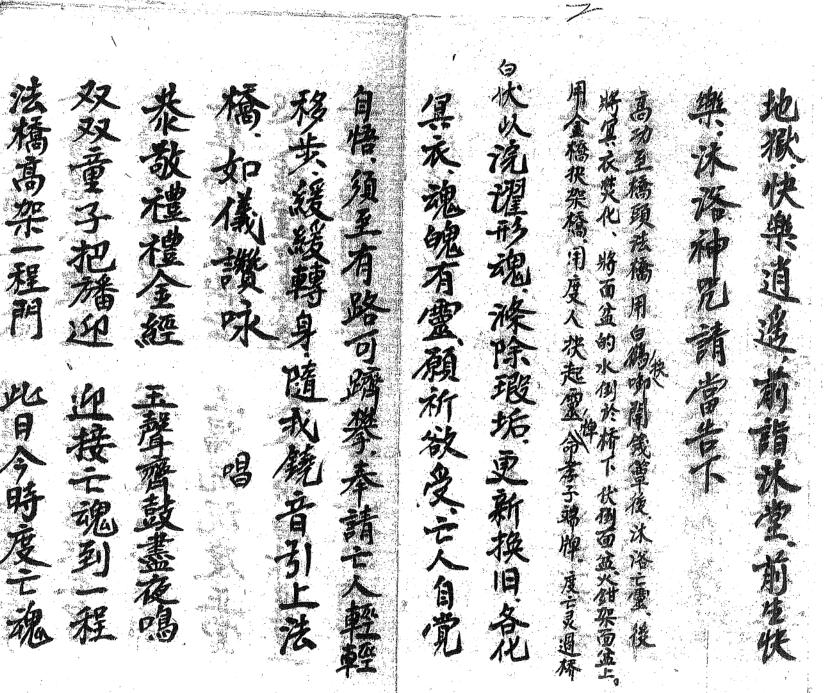 地獄、快樂逍遥、前詣沐堂、前生快
樂、沐浴神咒請當告下
高功至橋頭法橋用白鶴啣開錢章後、沐浴亡靈、後
將冥衣焚化、將面盆的水倒於橋下伏倒面盆、火鉗架面盆上。
用金橋抉架橋、用度人抉起靈牌命孝子端牌、度亡灵過橋
白伏以浣濯形魂、滌除瑕垢、更新換旧、各化
冥衣、魂魄有靈、願祈欲受、亡人自覚
自悟、須至有路可躋攀、奉請亡人輕輕
移步、緩緩轉身、隨我鐃音引上法
橋、如儀讚咏 唱
恭敬禮禮金經 玉聲齊鼓盡夜鳴
双双童子把旛迎 迎接亡魂到一程
法橋高架一程門 此日今時度亡魂